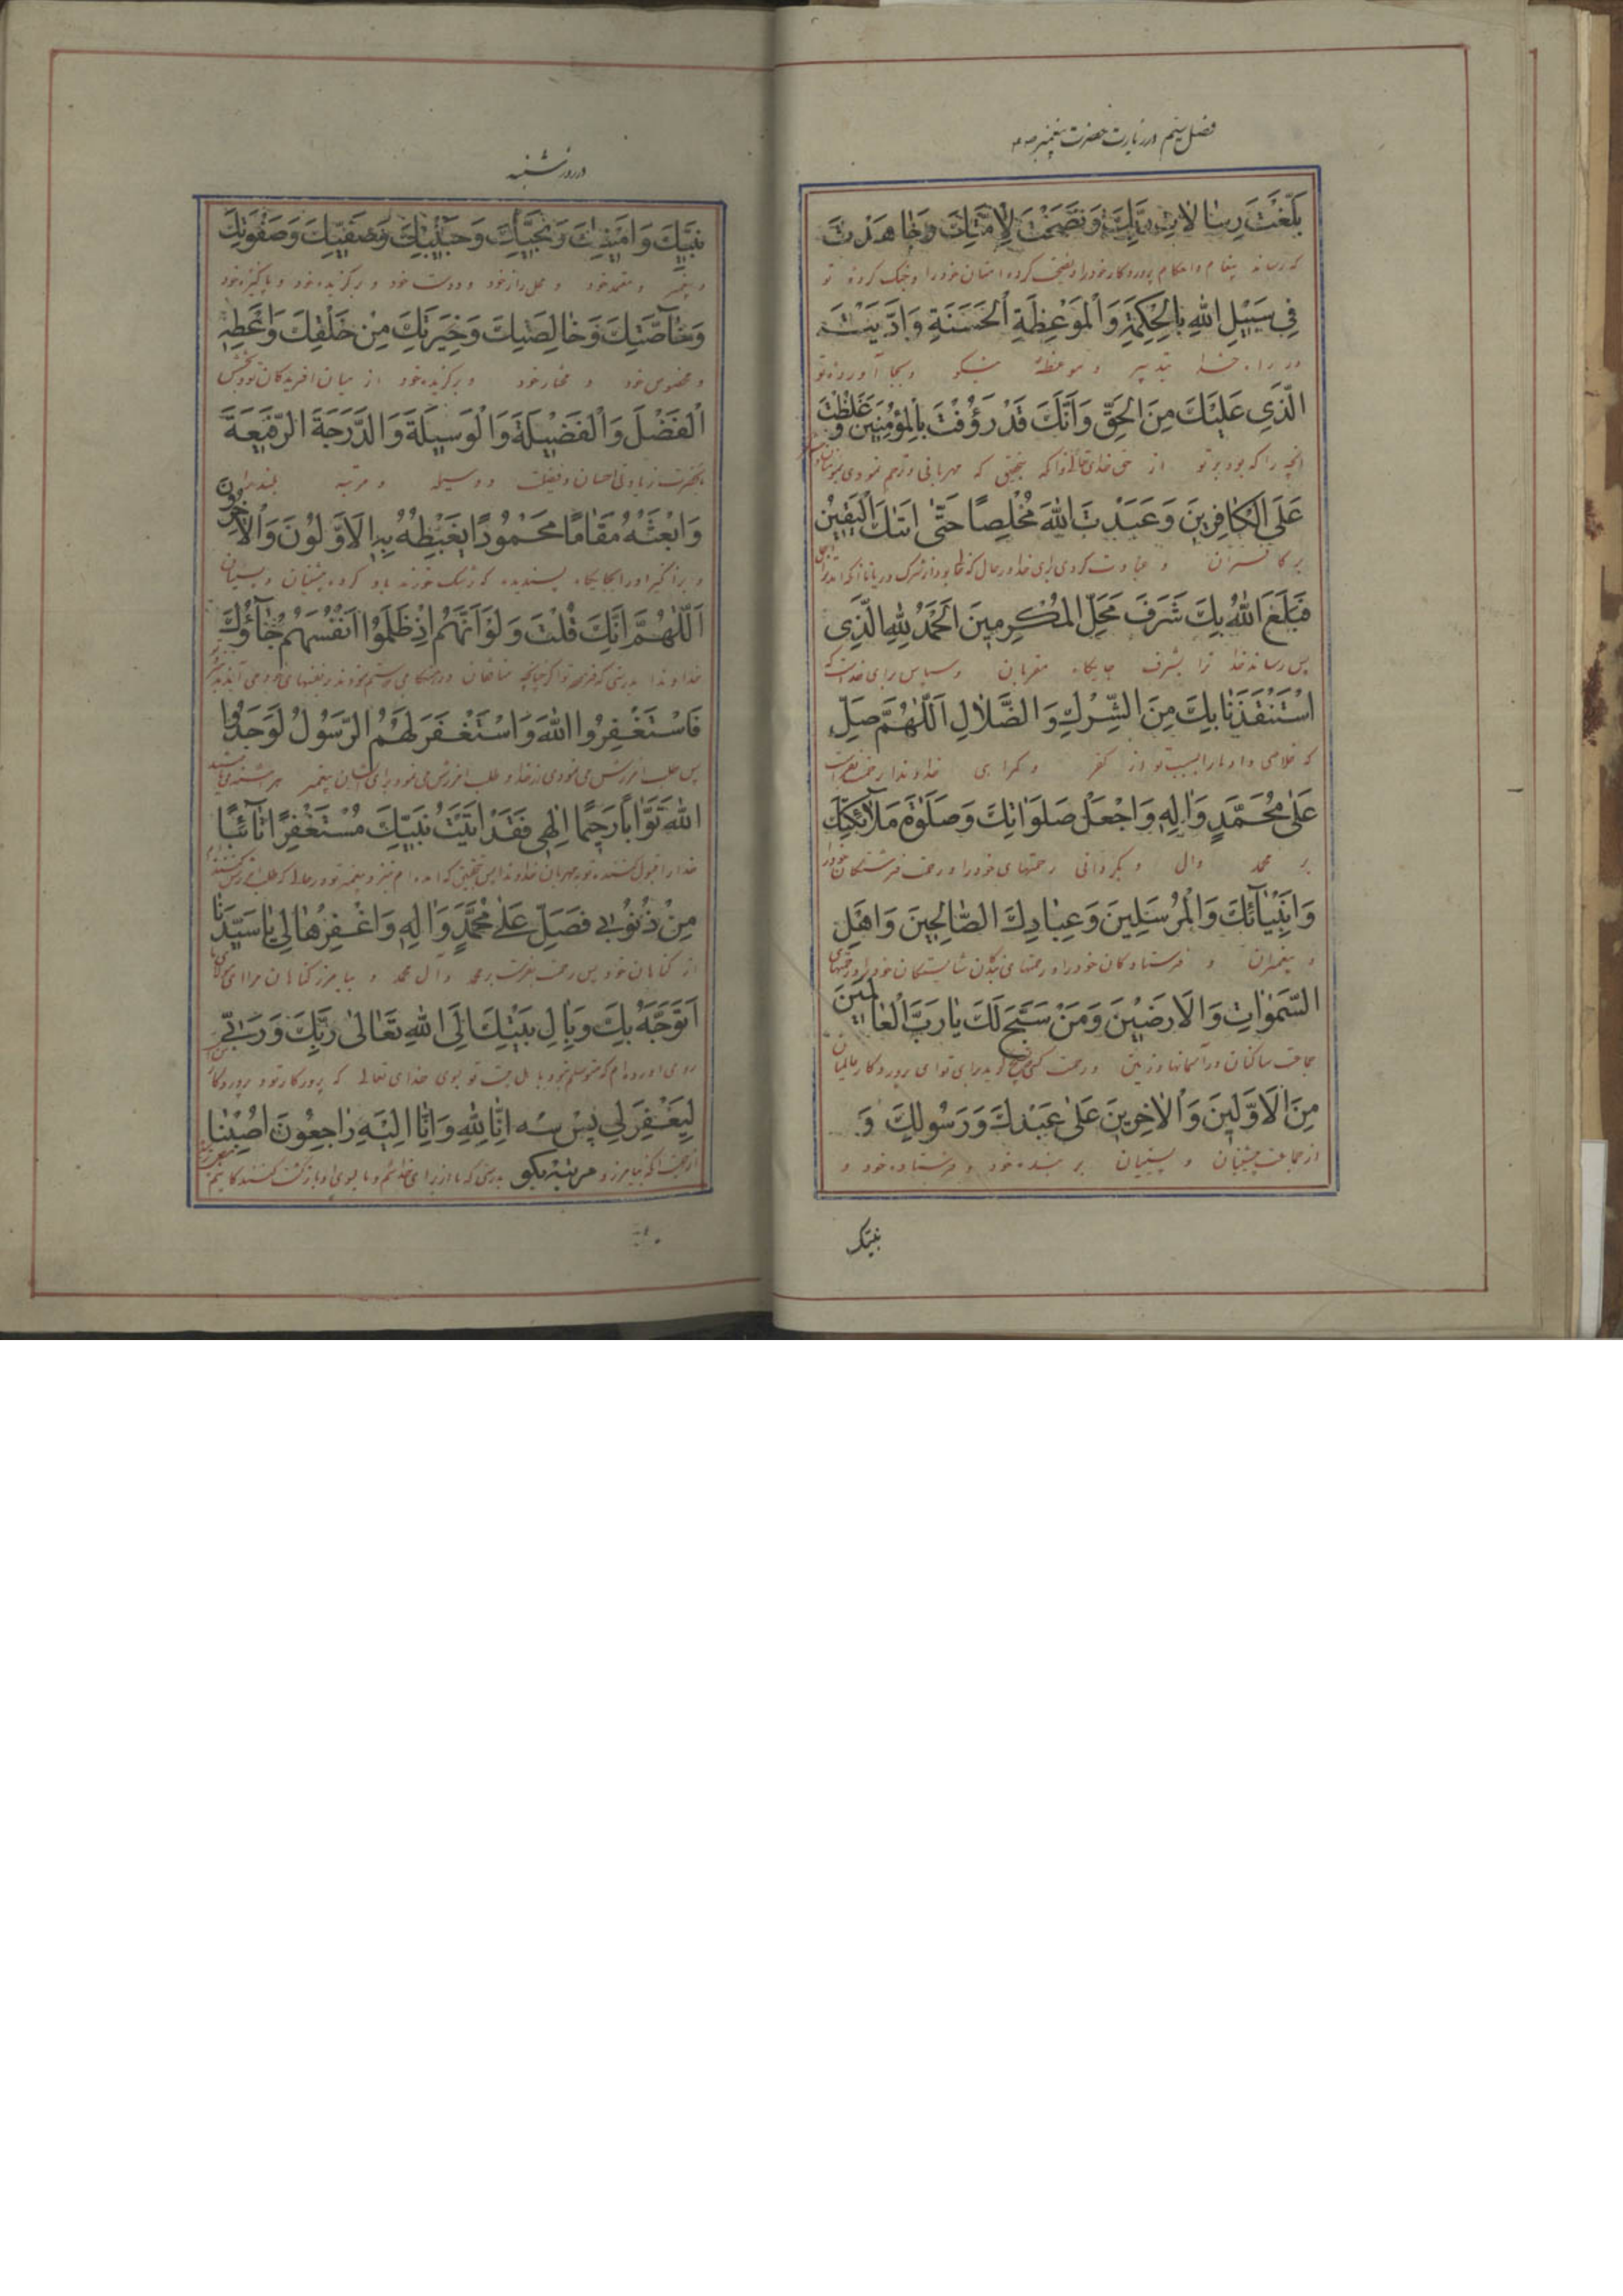 فصل پنجم در زیارت حضرت پیغمبر ص
بَلَّغْتَ رِسَالاتِ رَبِّكَ وَنَصَحْتَ لِاُمَّتِكَ وَجَاهَدْتَ
که رسانده پیغام و احکام پروردگار خود را و نصیحت کرده امتان خود را و جنگ کرده تو
فِي سَبِيْلِ اللهِ بِالْحِكْمَةِ وَالْمَوْعِظَةِ الْحَسَنَةِ وَادَّيْتَ
در راه خدا بتدبیر و موعظه نیکو و بجا آورده تو
الَّذِي عَلَيْكَ مِنَ الْحَقِّ وَاَنَّكَ قَدْ رَؤُفْتَ بِالْمُؤْمِنِيْنَ وَغَلَظْتَ
انچه را که بود بر تو از حق خدای که بتحقیق که مهربانی و ترحم نمودی
عَلَى الْكَافِرِيْنَ وَعَبَدْتَ اللهَ مُخْلِصًا حَتّٰى اَتٰىكَ الْيَقِيْنُ
بر کافران و عبادت کردی برای خدا در حال که
فَبَلَغَ اللهُ بِكَ شَرَفَ مَحَلِّ الْمُكَرَّمِيْنَ اَلْحَمْدُ لِلّٰهِ الَّذِي
پس رساند خدا ترا بشرف جایگاه مقربان و سپاس برای خداست که
اسْتَنْقَذَنَا بِكَ مِنَ الشِّرْكِ وَالضَّلَالِ اَللّٰهُمَّ صَلِّ
که خلاصی داد ما را بسبب تو از کفر و گمراهی خداوندا رحمت بفرست
عَلٰى مُحَمَّدٍ وَاٰلِهٖ وَاجْعَلْ صَلَوَاتِكَ وَصَلَوٰةَ مَلَآئِكَتِكَ
بر محمد وال و بگردانی رحمتهای خود را و رحمت فرشتگان خود را
وَاَنْبِيَآئِكَ وَالْمُرْسَلِيْنَ وَعِبَادِكَ الصَّالِحِيْنَ وَاَهْلِ
و پیغمبران و فرستادگان خود را و رحمتهای بندگان شایستگان خود را
السَّمٰوَاتِ وَالْاَرَضِيْنَ وَمَنْ سَبَّحَ لَكَ يَا رَبَّ الْعَالَمِيْنَ
جماعت ساکنان در آسمانها و زمین و رحمت کسی تسبیح گوید برای تو ای پروردگار عالمیان
مِنَ الْاَوَّلِيْنَ وَالْاٰخِرِيْنَ عَلٰى عَبْدِكَ وَرَسُوْلِكَ وَ
از جماعت پیشینیان و پسینیان بر بنده خود و فرستاده خود و
نبیک
در روز شنبه
نَبِيِّكَ وَاَمِيْنِكَ وَنَجِيِّكَ وَحَبِيْبِكَ وَصَفِيِّكَ وَصَفْوَتِكَ
و پیغمبر و معتمد خود و محل راز خود و دوست خود و برگزیده خود و پاکیزه خود
وَخَآصَّتِكَ وَخَالِصَتِكَ وَخِيَرَتِكَ مِنْ خَلْقِكَ وَاَعْطِهِ
و مخصوص خود و مختار خود و برگزیده خود از میان افریدگان تو و ببخش
الْفَضْلَ وَالْفَضِيْلَةَ وَالْوَسِيْلَةَ وَالدَّرَجَةَ الرَّفِيْعَةَ
بانحضرت زیادتی احسان و فضیلت و وسیله و مرتبه بلند
وَابْعَثْهُ مَقَامًا مَحْمُوْدًا يَغْبِطُهُ بِهِ الْاَوَّلُوْنَ وَالْاٰخِرُوْنَ
و برانگیز او را بجایگاه پسندیده که رشک خورند باو گروه پیشینیان و پسینیان
اَللّٰهُمَّ اِنَّكَ قُلْتَ وَلَوْ اَنَّهُمْ اِذْ ظَلَمُوْا اَنْفُسَهُمْ جَآؤُكَ
خداوندا بدرستی که فرموده
فَاسْتَغْفَرُوا اللهَ وَاسْتَغْفَرَ لَهُمُ الرَّسُوْلُ لَوَجَدُوا
پس طلب امرزش می نمودی از خدا و طلب امرزش می نمود برای ایشان پیغمبر
اللهَ تَوَّابًا رَحِيْمًا اِلٰهِي فَقَدْ اَتَيْتُ نَبِيَّكَ مُسْتَغْفِرًا تَآئِبًا
خدا را قبول کننده توبه مهربان خداوندا پس بتحقیق که امده ام
مِنْ ذُنُوْبِي فَصَلِّ عَلٰى مُحَمَّدٍ وَاٰلِهٖ وَاغْفِرْهَا لِي يَا سَيِّدَنَا
از گناهان خود پس رحمت بفرست بر محمد وال محمد و بیامرز گناهان مرا ای
اَتَوَجَّهُ بِكَ وَبِاٰلِ بَيْتِكَ اِلَى اللهِ تَعَالٰى رَبِّكَ وَرَبِّي
روی اورده ام بسوی خدای تعالی که پروردگار تو و پروردگار
لِيَغْفِرَ لِي پس سه اِنَّا لِلّٰهِ وَاِنَّا اِلَيْهِ رَاجِعُوْنَ اُصِبْنَا
مرتبه بگو